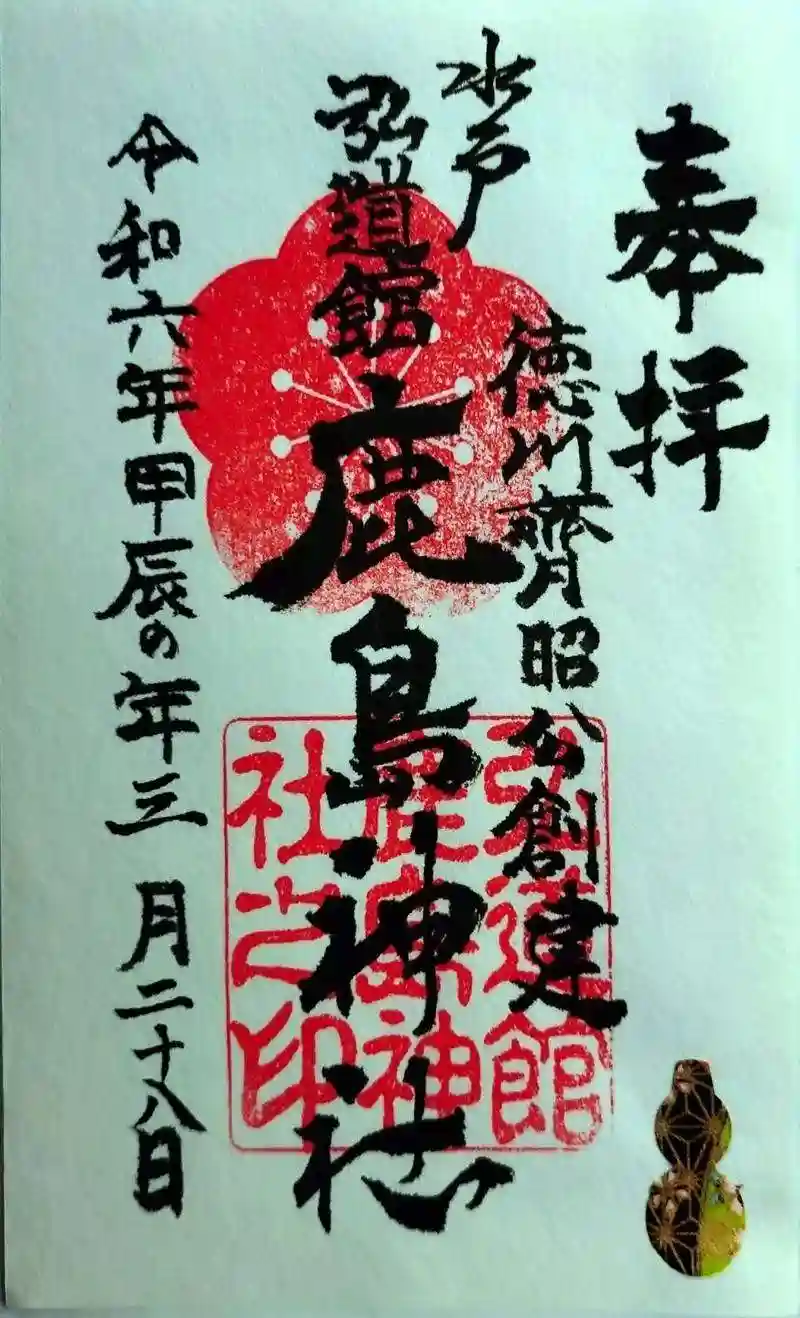 奉拝
徳川齊昭公創建
水戸
弘道館鹿島神社
令和六年甲辰の年三月二十八日
弘道館
鹿島神
社之印